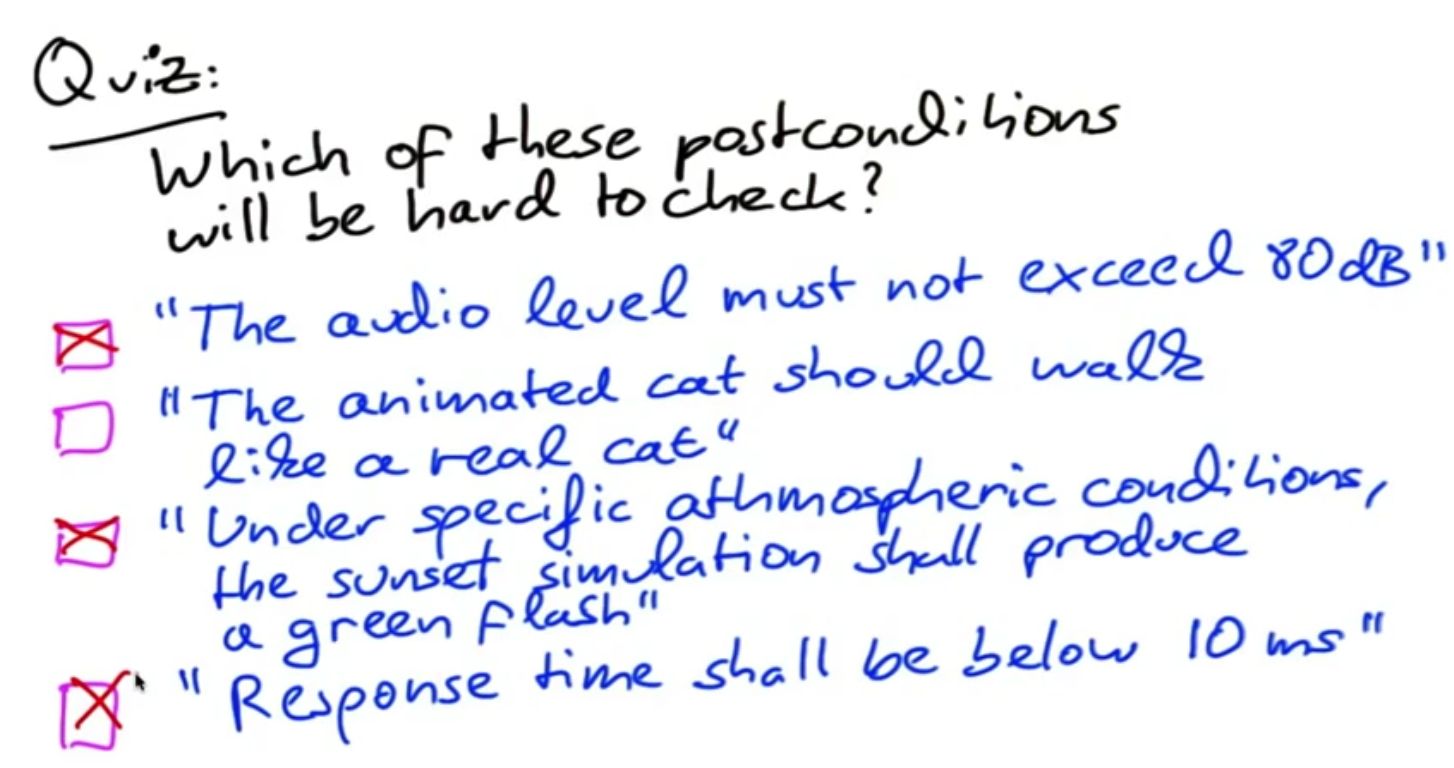 Quiz:
Which of these postconditions
will be hard to check?
"The audio level must not exceed 80 dB"
"The animated cat should walk
like a real cat"
"Under specific athmospheric conditions,
the sunset simulation shall produce
a green flash"
"Response time shall be below 10 ms"